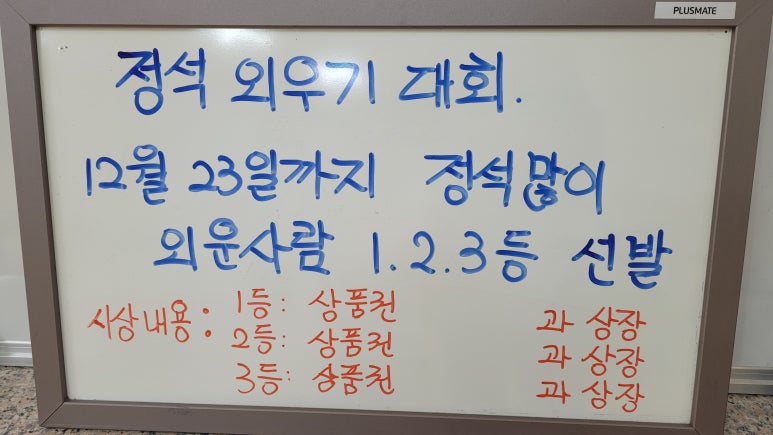 PLUSMATE
정석 외우기 대회.
12월 23일까지 정석많이
외운사람 1.2.3등 선발
시상내용: 1등: 상품권 과 상장
2등: 상품권 과 상장
3등: 상품권 과 상장